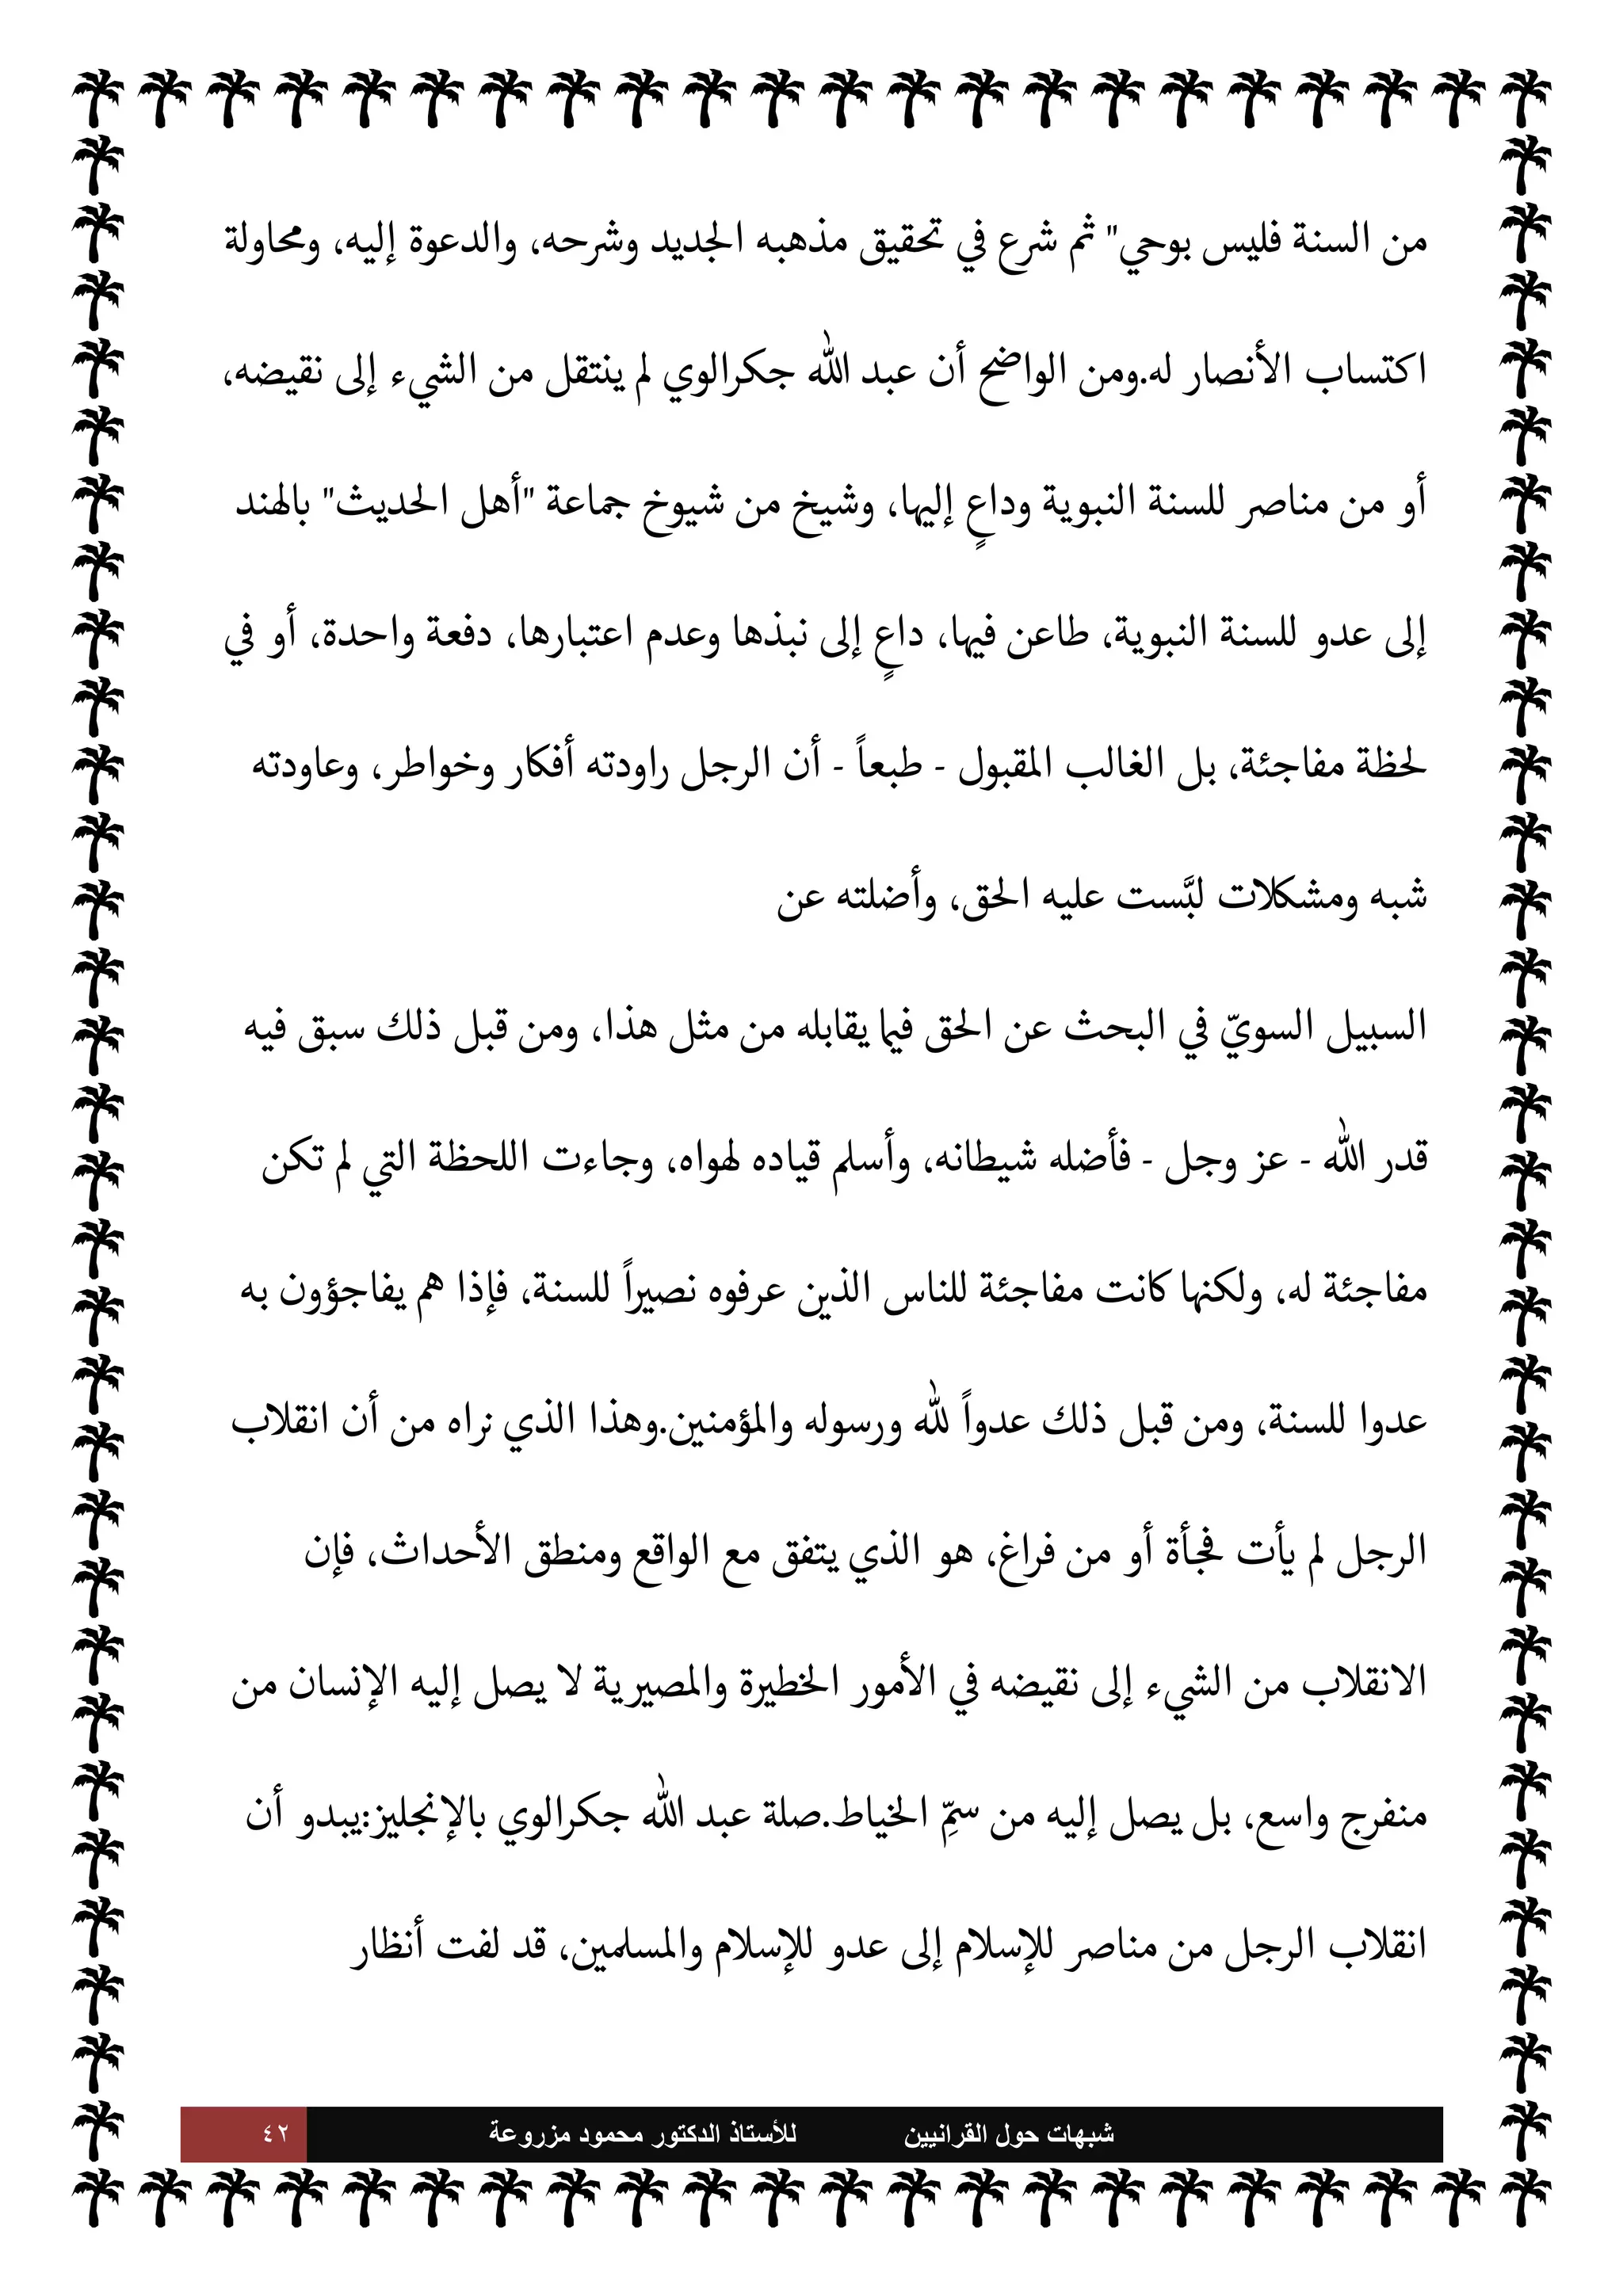 من السنة فليس بوحي" ثم شرع في تحقيق مذهبه الجديد وشرحه، والدعوة إليه، ومحاولة
اكتساب الأنصار له.ومن الواضح أن عبد الله جكرالوي لم ينتقل من الشيء إلى نقيضه،
أو من مناصر للسنة النبوية وداعٍ إليها، وشيخ من شيوخ جماعة "أهل الحديث" بالهند
إلى عدو للسنة النبوية، طاعن فيها، داعٍ إلى نبذها وعدم اعتبارها، دفعة واحدة، أو في
لحظة مفاجئة، بل الغالب المقبول - طبعاً - أن الرجل راودته أفكار وخواطر، وعاودته
شبه ومشكلات لبَّست عليه الحق، وأضلته عن
السبيل السويّ في البحث عن الحق فيما يقابله من مثل هذا، ومن قبل ذلك سبق فيه
قدر الله - عز وجل - فأضله شيطانه، وأسلم قياده لهواه، وجاءت اللحظة التي لم تكن
مفاجئة له، ولكنها كانت مفاجئة للناس الذين عرفوه نصيراً للسنة، فإذا هم يفاجؤون به
عدوا للسنة، ومن قبل ذلك عدواً لله ورسوله والمؤمنين.وهذا الذي نراه من أن انقلاب
الرجل لم يأت فجأة أو من فراغ، هو الذي يتفق مع الواقع ومنطق الأحداث، فإن
الانقلاب من الشيء إلى نقيضه في الأمور الخطيرة والمصيرية لا يصل إليه الإنسان من
منفرج واسع، بل يصل إليه من سمِّ الخياط.صلة عبد الله جكرالوي بالإنجليز:يبدو أن
انقلاب الرجل من مناصر للإسلام إلى عدو للإسلام والمسلمين، قد لفت أنظار
شبهات حول القرانيين للأستاذ الدكتور محمود مزروعة ٤٢